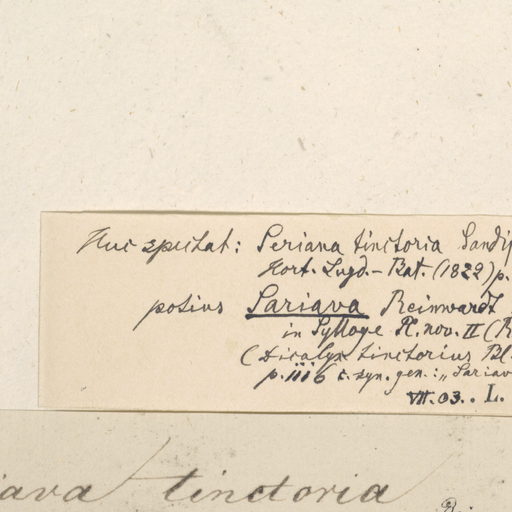 Huc spectat: Seriana tinctoria Sandif
Hort. Lugd.-Bat. (1822) p.
potius Sariava Reinwardt
in Sylloge Pl. nov. II (R
(Dicalyx tinctorius Bl.
p. 1116 c. syn. gen.: „Sariav
VII. 03. . L.
iava tinctoria